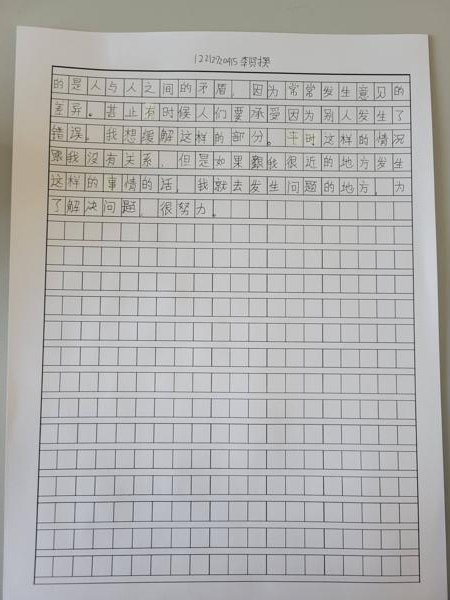 李贤揆
的是人与人之间的矛盾，因为常常发生意见的
差异。甚止有时候人们要承受因为别人发生了
错误。我想缓解这样的部分。平时这样的情况
跟我没有关系，但是如果艱我很近的地方发生
这样的事情的话，我就去发生问题的地方，为
了解决问题，很努力。